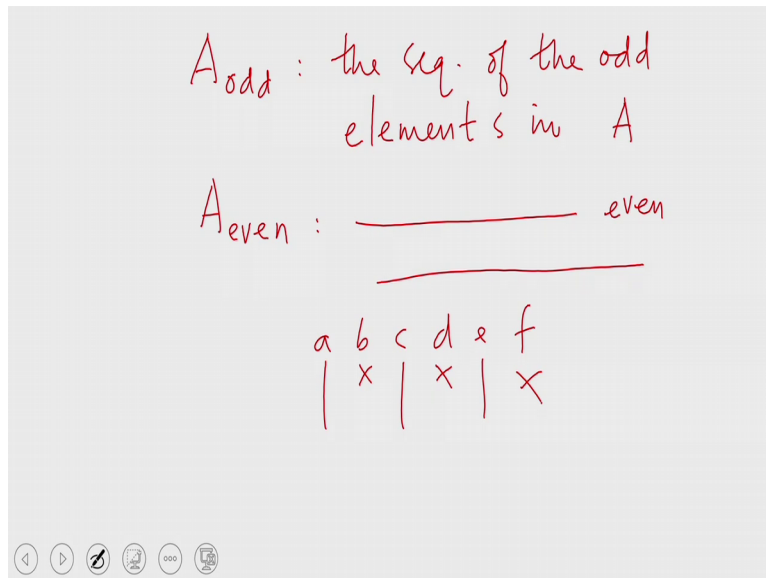 A odd : the seq. of the odd
elements in A
A even : ——— even
———
a b c d e f
| x | x | x